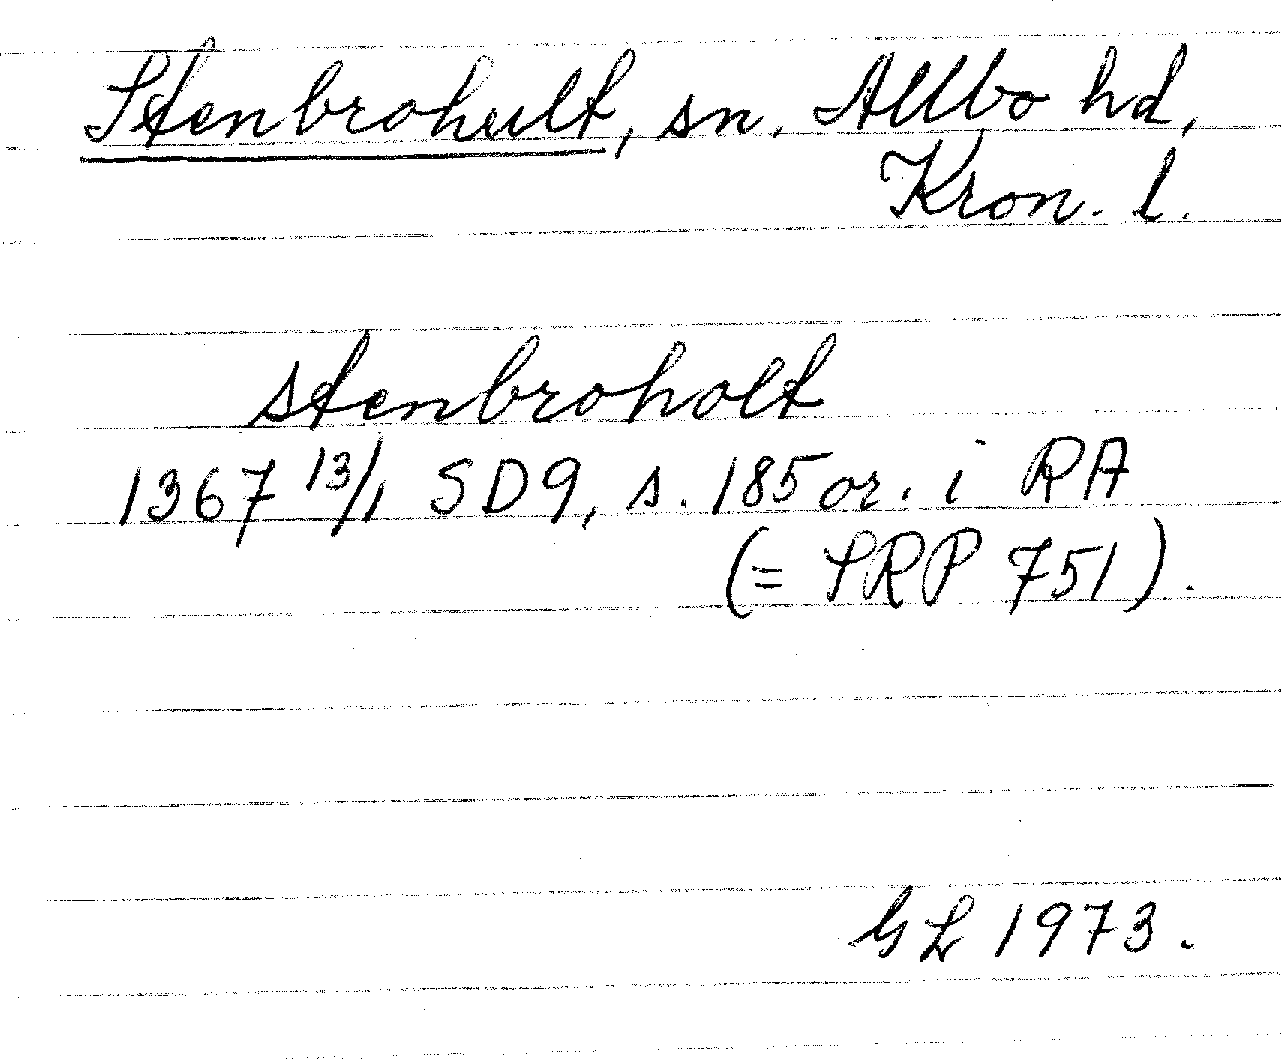 Stenbrohult, sn, Allbo hd,
Kron. l.
stenbroholt
1367 13/1 SD9, s. 185 or. i RA
(= SRP 751).
GL 1973.